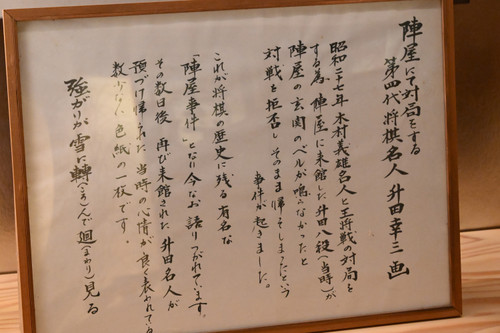 陣屋にて対局をする
第四代将棋名人 升田幸三画
昭和二十七年 木村義雄名人と王将戦の対局を
する為、陣屋に来館した升田八段(当時)が
陣屋の玄関のベルが鳴らなかったと
対戦を拒否し そのまま帰ってしまったという
事件が起きました。
これが将棋の歴史に残る有名な
「陣屋事件」となり 今なお語りつがれています。
その数日後 再び来館された 升田名人が
預づけ帰られた 当時の心情が良く表われてる
数少ない色紙の一枚です。
強がりが雪に轉(ころ)んで 廻(まわ)り見る